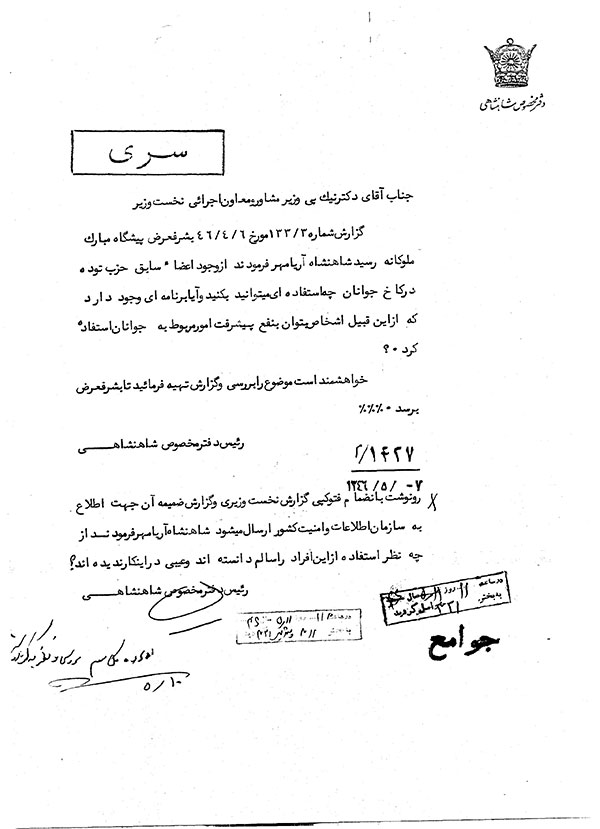 دفتر مخصوص شاهنشاهی
سری
جناب آقای دکتر نیک پی وزیر مشاور و معاون اجرائی نخست وزیر
گزارش شماره ۱۳۳/۳ مورخ ۴۶/۴/۶ بشرفعرض پیشگاه مبارک
ملوکانه رسید شاهنشاه آریامهر فرمودند از وجود اعضاء سابق حزب توده
در کاخ جوانان چه استفاده ای میتوانید بکنید و آیا برنامه ای وجود دارد
که از این قبیل اشخاص بتوان بنفع پیشرفت امور مربوط به جوانان استفاده
کرد ۰؟
خواهشمند است موضوع را بررسی و گزارش تهیه فرمائید تا بشرفعرض
برسد ۰٪٪٪
رئیس دفتر مخصوص شاهنشاهی
۲/۱۴۲۷
۱۳۴۶/۵/۰۷
رونوشت بانضمام فتوکپی گزارش نخست وزیری و گزارش ضمیمه آن جهت اطلاع
به سازمان اطلاعات و امنیت کشور ارسال میشود شاهنشاه آریامهر فرمودند از
چه نظر استفاده از این افراد را سالم دانسته اند و عیبی در اینکار ندیده اند؟
رئیس دفتر مخصوص شاهنشاهی
جوامع
۵/۱۰